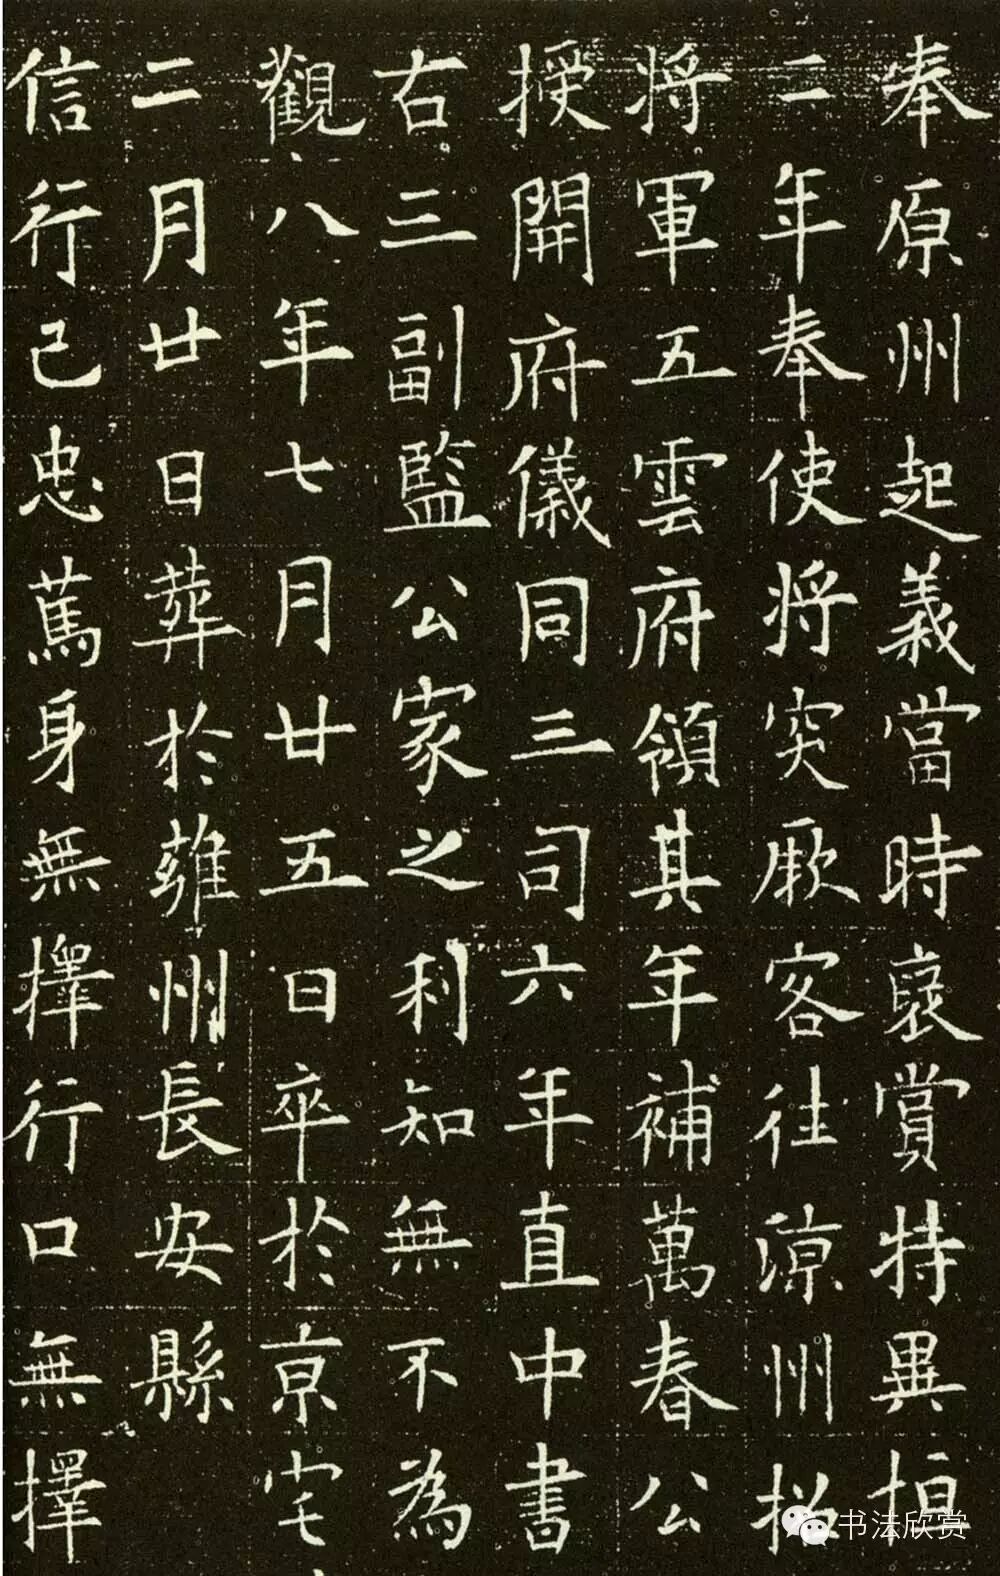 奉原州起義當時裦賞特異恒
二年奉使將突厥客往涼州招
將軍五雲府領其年補萬春公
授開府儀同三司六年直中書
右三副監公家之利知無不為
觀八年七月廿五日卒於京宅
二月廿日葬於雍州長安縣
信行己忠篤身無擇行口無擇
书法欣赏